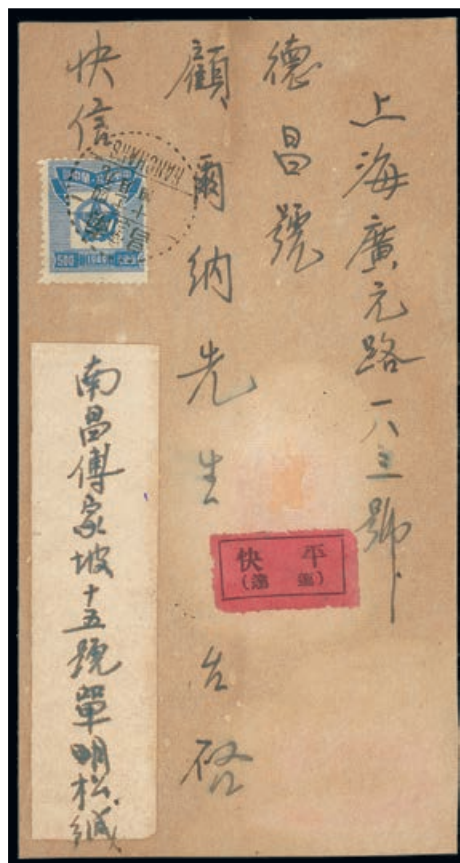 上海廣元路一八三號
德昌號
顧爾納先生 台啓
快平
快信
NANCHANG
500 1949
南昌傅家坡十五號單明松緘